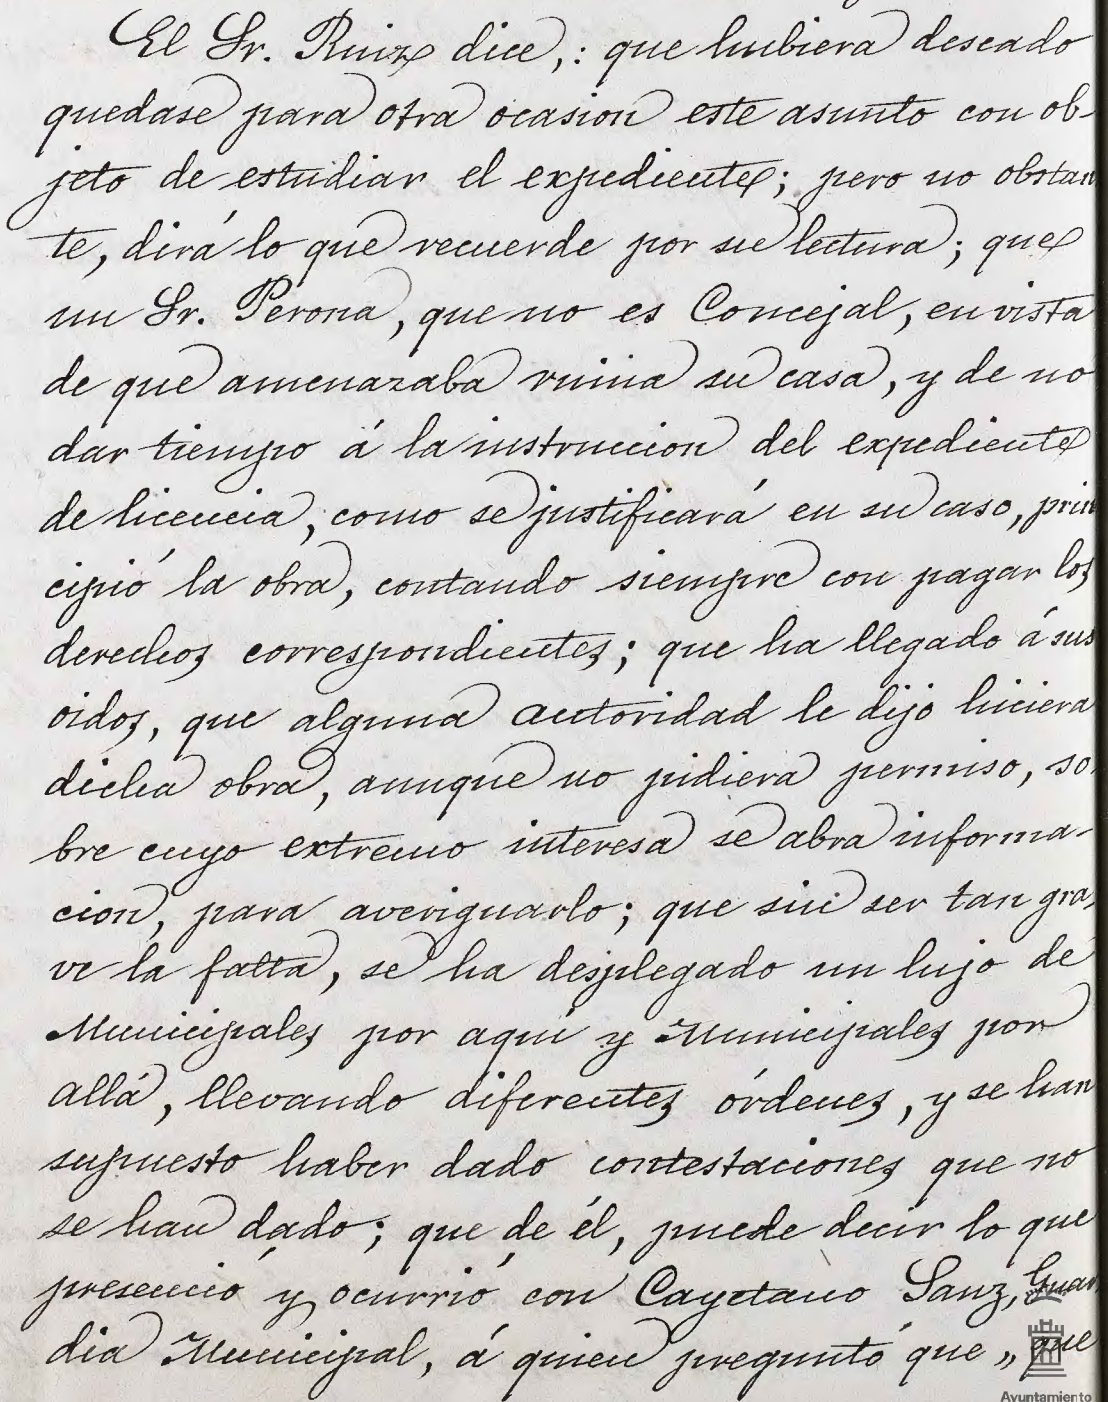 El Sr. Ruiz dice,: que hubiera deseado
quedase para otra ocasion este asunto con ob-
jeto de estudiar el expediente; pero no obstan
te, dirá lo que recuerde por su lectura; que
un Sr. Perona, que no es Concejal, en vista
de que amenazaba ruina su casa, y de no
dar tiempo á la instruccion del expediente
de licencia, como se justificará en su caso, prin
cipió la obra, contando siempre con pagar los
derechos correspondientes; que ha llegado á sus
oidos, que alguna autoridad le dijo hiciera
dicha obra, aunque no pidiera permiso, so
bre cuyo extremo interesa se abra informa-
cion, para averiguarlo; que sin ser tan gra-
ve la falta, se ha desplegado un lujo de
Municipales por aquí y Municipales por
allá, llevando diferentes órdenes, y se han
supuesto haber dado contestaciones que no
se han dado; que de él, puede decir lo que
presenció y ocurrió con Cayetano Sanz, Guar
dia Municipal, á quien preguntó que „que
Ayuntamiento